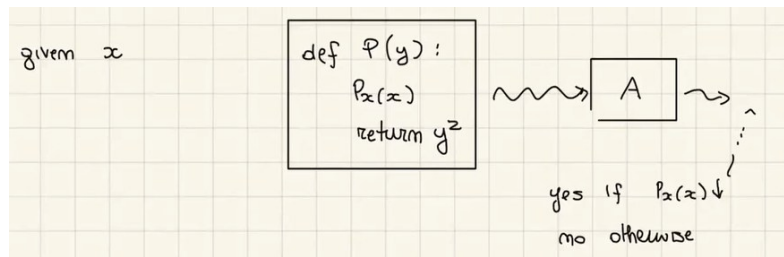 given x
def P(y):
Pₓ(x)
return y²
A
yes if Pₓ(x)↓
no otherwise